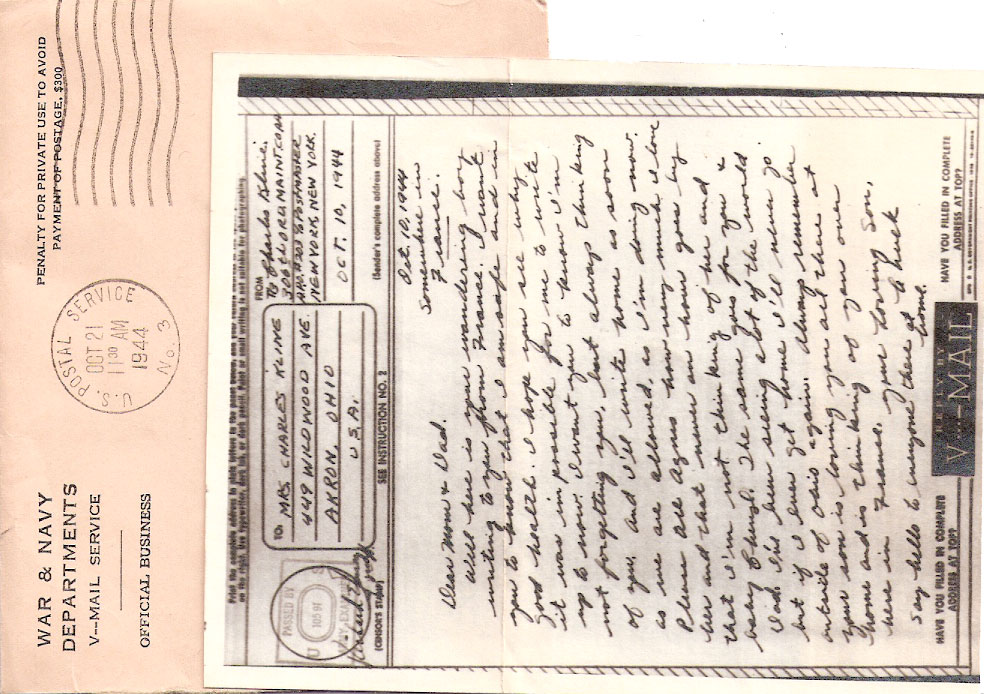 WAR & NAVY
DEPARTMENTS
V--MAIL SERVICE
OFFICIAL BUSINESS
PENALTY FOR PRIVATE USE TO AVOID
PAYMENT OF POSTAGE, $300
U.S. POSTAL SERVICE
OCT 21
11 30 AM
1944
No. 3
Print the complete address in plain letters in the panel below, and your return address in the space provided
on the right. Use typewriter, dark ink, or dark pencil. Faint or small writing is not suitable for photographing.
TO
MRS. CHARLES KLINE
449 WILDWOOD AVE.
AKRON, OHIO
U.S.A.
FROM
Charles Kline.
306 ORD MAINT. COM
A.P.O. 203 % POSTMASTER
NEW YORK, NEW YORK.
OCT. 10, 1944
(Sender's complete address above)
PASSED BY
U
ARMY EXAMINER
(CENSOR'S STAMP)
SEE INSTRUCTION NO. 2
Oct. 10, 1944
Somewhere in
France.
Dear Mom & Dad.
Well here is your wandering boy
writing to you from France. I want
you to know that I am safe and in
good health. I hope you see why
it was imposible for me to write
up to now. I want you to know I'm
not forgetting you, but always thinking
of you; and I'll write home as soon
as we are allowed, as I'm doing now.
Please tell Agnes how very much I love
her and that never an hour goes by
that I'm not thinking of her and
baby Cheryl. The same goes for you &
Dad. I've been seeing a lot of the world
but if I ever get home I'll never go
outside of Ohio again. Always remember
your son is loving you all there at
home and is thinking of you over
here in France. Your Loving Son,
Say hello to everyone there at
home.
HAVE YOU FILLED IN COMPLETE
ADDRESS AT TOP?
V--MAIL
HAVE YOU FILLED IN COMPLETE
ADDRESS AT TOP?